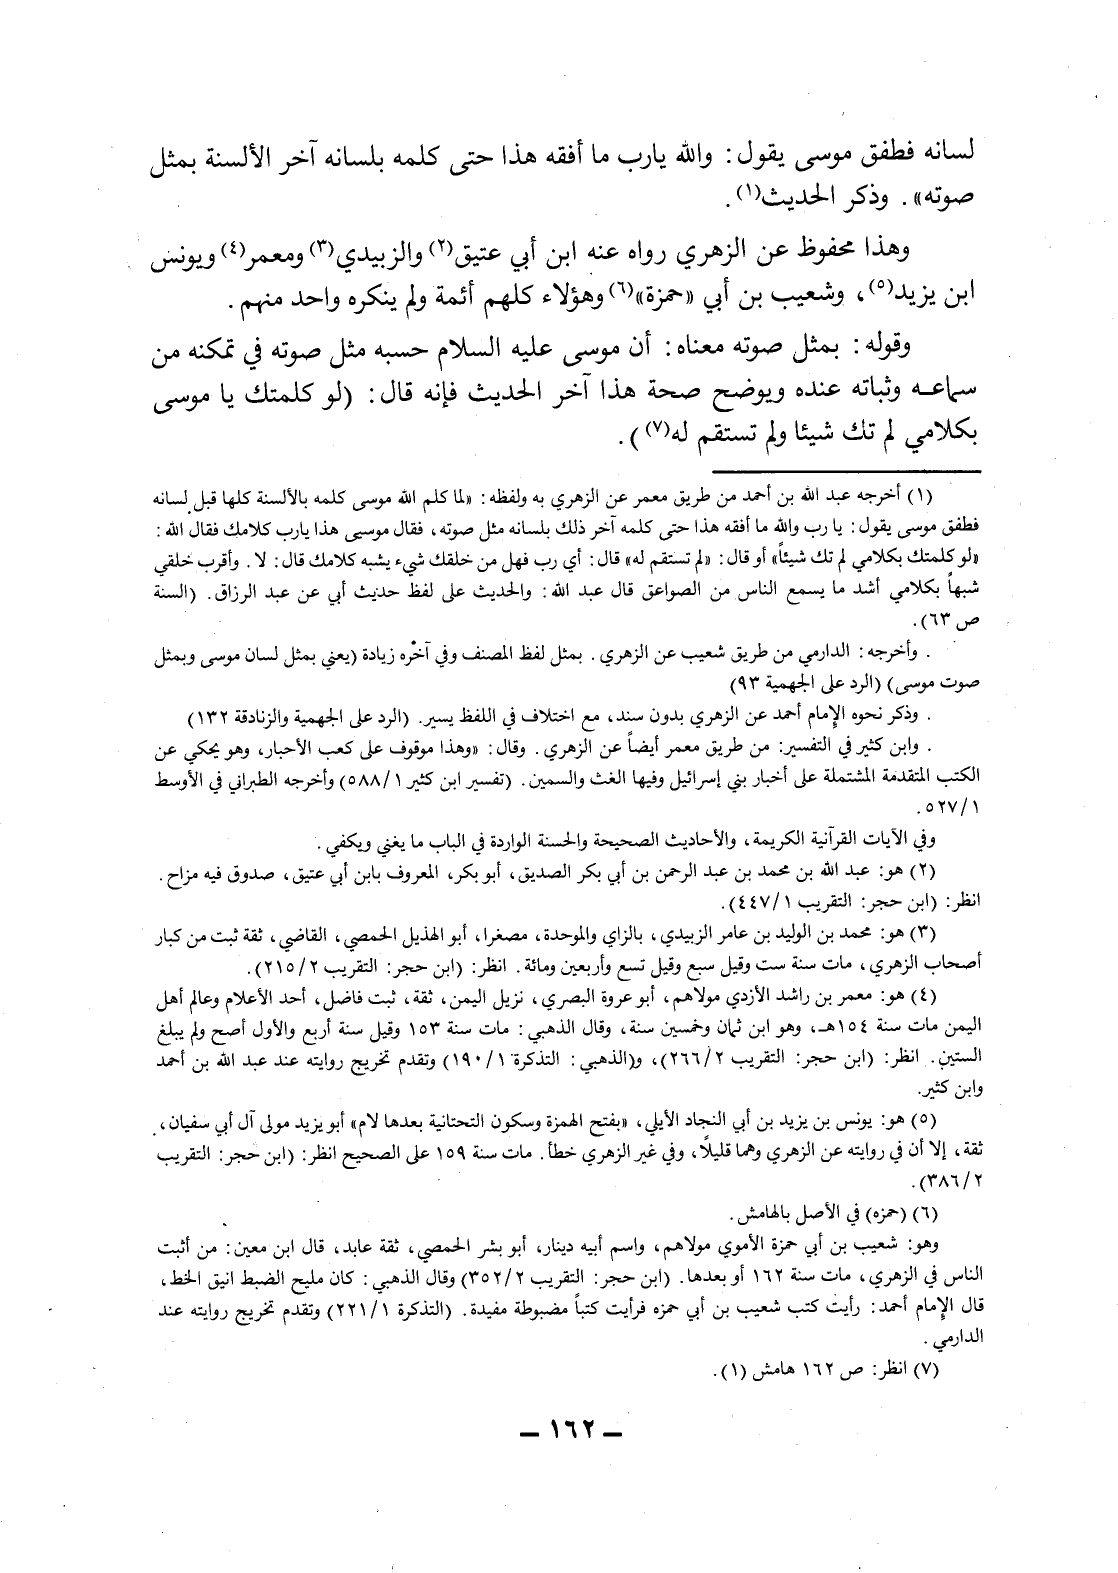 لسانه فطفق موسى يقول: والله يارب ما أفقه هذا حتى كلمه بلسانه آخر الألسنة بمثل
صوته». وذكر الحديث(١).
وهذا محفوظ عن الزهري رواه عنه ابن أبي عتيق(٢) والزبيدي(٣) ومعمر(٤) ويونس
ابن يزيد(٥)، وشعيب بن أبي «حمزة»(٦) وهؤلاء كلهم أئمة ولم ينكره واحد منهم.
وقوله: بمثل صوته معناه: أن موسى عليه السلام حسبه مثل صوته في تمكنه من
سماعـه وثباته عنده ويوضح صحة هذا آخر الحديث فإنه قال: (لو كلمتك يا موسى
بكلامي لم تك شيئا ولم تستقم له(٧)).
(١) أخرجه عبد الله بن أحمد من طريق معمر عن الزهري به ولفظه: «لما كلم الله موسى كلمه بالألسنة كلها قبل لسانه
فطفق موسى يقول: يا رب والله ما أفقه هذا حتى كلمه آخر ذلك بلسانه مثل صوته، فقال موسى هذا يارب كلامك فقال الله:
«لو كلمتك بكلامي لم تك شيئاً» أو قال: «لم تستقم له» قال: أي رب فهل من خلقك شيء يشبه كلامك قال: لا. وأقرب خلقي
شبهاً بكلامي أشد ما يسمع الناس من الصواعق قال عبد الله: والحديث على لفظ حديث أبي عن عبد الرزاق. (السنة
ص ٦٣).
. وأخرجه: الدارمي من طريق شعيب عن الزهري. بمثل لفظ المصنف وفي آخره زيادة (يعني بمثل لسان موسى وبمثل
صوت موسى) (الرد على الجهمية ٩٣)
. وذكر نحوه الإمام أحمد عن الزهري بدون سند، مع اختلاف في اللفظ يسير. (الرد على الجهمية والزنادقة ١٣٢)
. وابن كثير في التفسير: من طريق معمر أيضاً عن الزهري. وقال: «وهذا موقوف على كعب الأحبار، وهو يحكي عن
الكتب المتقدمة المشتملة على أخبار بني إسرائيل وفيها الغث والسمين. (تفسير ابن كثير ٥٨٨/١) وأخرجه الطبراني في الأوسط
٥٢٧/١.
وفي الآيات القرآنية الكريمة، والأحاديث الصحيحة والحسنة الواردة في الباب ما يغني ويكفي.
(٢) هو: عبد الله بن محمد بن عبد الرحمن بن أبي بكر الصديق، أبو بكر، المعروف بابن أبي عتيق، صدوق فيه مزاح.
انظر: (ابن حجر: التقريب ٤٤٧/١).
(٣) هو: محمد بن الوليد بن عامر الزبيدي، بالزاي والموحدة، مصغرا، أبو الهذيل الحمصي، القاضي، ثقة ثبت من كبار
أصحاب الزهري، مات سنة ست وقيل سبع وقيل تسع وأربعين ومائة. انظر: (ابن حجر: التقريب ٢١٥/٢).
(٤) هو: معمر بن راشد الأزدي مولاهم، أبو عروة البصري، نزيل اليمن، ثقة، ثبت فاضل، أحد الأعلام وعالم أهل
اليمن مات سنة ١٥٤هـ، وهو ابن ثمان وخمسين سنة، وقال الذهبي: مات سنة ١٥٣ وقيل سنة أربع والأول أصح ولم يبلغ
الستين. انظر: (ابن حجر: التقريب ٢٦٦/٢)، و(الذهبي: التذكرة ١٩٠/١) وتقدم تخريج روايته عند عبد الله بن أحمد
وابن كثير.
(٥) هو: يونس بن يزيد بن أبي النجاد الأيلي، «بفتح الهمزة وسكون التحتانية بعدها لام» أبو يزيد مولى آل أبي سفيان،
ثقة، إلا أن في روايته عن الزهري وهما قليلًا، وفي غير الزهري خطأ. مات سنة ١٥٩ على الصحيح انظر: (ابن حجر: التقريب
٣٨٦/٢).
(٦) (حمزه) في الأصل بالهامش.
وهو: شعيب بن أبي حمزة الأموي مولاهم، واسم أبيه دينار، أبو بشر الحمصي، ثقة عابد، قال ابن معين: من أثبت
الناس في الزهري، مات سنة ١٦٢ أو بعدها. (ابن حجر: التقريب ٣٥٢/٢) وقال الذهبي: كان مليح الضبط انيق الخط،
قال الإمام أحمد: رأيت كتب شعيب بن أبي حمزه فرأيت كتباً مضبوطة مفيدة. (التذكرة ٢٢١/١) وتقدم تخريج روايته عند
الدارمي.
(٧) انظر: ص ١٦٢ هامش (١).
– ١٦٢ –